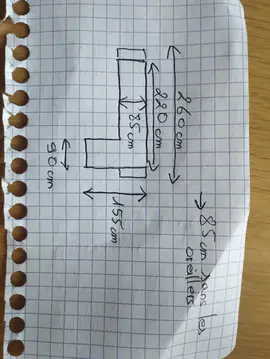 260 cm
220 cm
85 cm
155 cm
90 cm
→ 85 cm sans les
oreillers